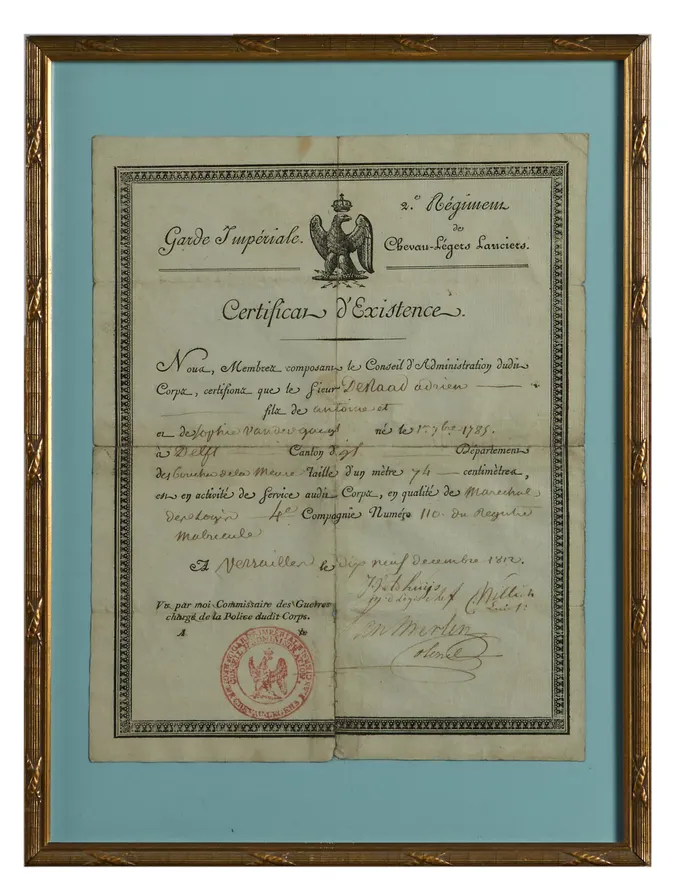 Garde Impériale.
2.e Régiment
de
Chevau-Légers Lanciers.
Certificat d'Existence.
Nous, Membres composant le Conseil d'Administration dudit
Corps, certifions que le Sieur DeRaad adrien
fils de antoine et
et de Sophie Vander né le 1er 7bre 1785.
à Delft Canton d' Département
des bouches de la Meuse taille d'un mètre 74 centimètres,
est en activité de Service audit Corps, en qualité de Marechal
des Logis 4e Compagnie Numéro 110 du Registre
Matricule
A Versailles le dix neuf decembre 1812.
Vu par moi Commissaire des Guerres
chargé de la Police dudit Corps.
A le
Colonel